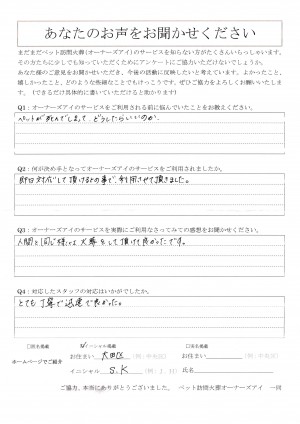 あなたのお声をお聞かせください
まだまだペット訪問火葬(オーナーズアイ)のサービスを知らない方がたくさんいらっしゃいます。
その方たちに少しでも知っていただくためにアンケートにご協力いただけないでしょうか。
あなた様のご意見をお聞かせいただき、今後の活動に反映したいと考えています。よかったこと、
嬉しかったこと、感動したこと、つまらないことでもけっこうです。ぜひご協力をよろしくお願いいたしま
す。(できるだけ具体的に書いていただけると助かります)
Q1:オーナーズアイのサービスをご利用される前に悩んでいたことをお教えください。
ペットが死んでしまって、どうしたらいいのか。
Q2:何が決め手となってオーナーズアイのサービスをご利用されましたか。
即日対応して頂けるとの事で、利用させて頂きました。
Q3:オーナーズアイのサービスを実際にご利用なさってみての感想をお聞かせください。
人間と同じ様に火葬をして頂けて良かったです。
Q4:対応したスタッフの対応はいかがでしたか。
とても丁寧で迅速で良かった。
ホームページでご紹介
イニシャル掲載
お住まい 大田区 (例:中央区)
イニシャル S.K (例:T.H)
実名掲載
お住まい (例:中央区)
お名前
ご協力、本当にありがとうございました。 ペット訪問火葬オーナーズアイ 一同